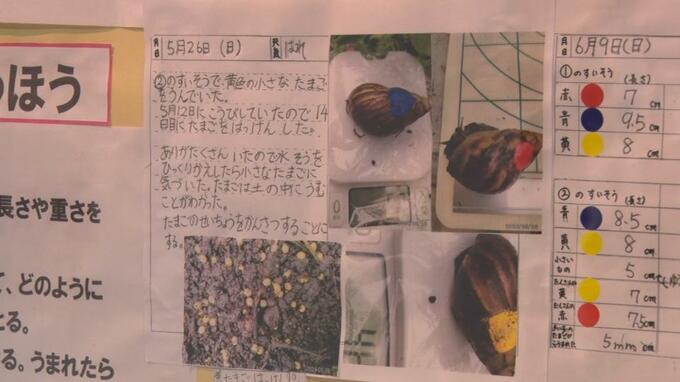 のほう
長さや重さを
て、どのように
とる。
る。うまれたら
月日 5月26日(日) 天気 はれ
②のすいそうで、黄色の小さな たまご
をうんでいた。
5月12日にこうびしていたので 14
日目にたまごをはっけんした。
ありがたくさん いたので水 そうを
ひっくりかえしたら小さなたまごに
気づいた。たまごは土の中にうむ
ことがわかった。
たまごのせいちょうをかんさつすることに
する。
月日 6月9日(日)
①のすいそう (長さ)
赤 7 cm
青 9.5 cm
黄 8 cm
②のすいそう (長さ)
青 8.5 cm
黄 8 cm
小さい
もの 5 cm
たくさんの
黄 7 cm
たくさんの
赤 7.5 cm
5mm